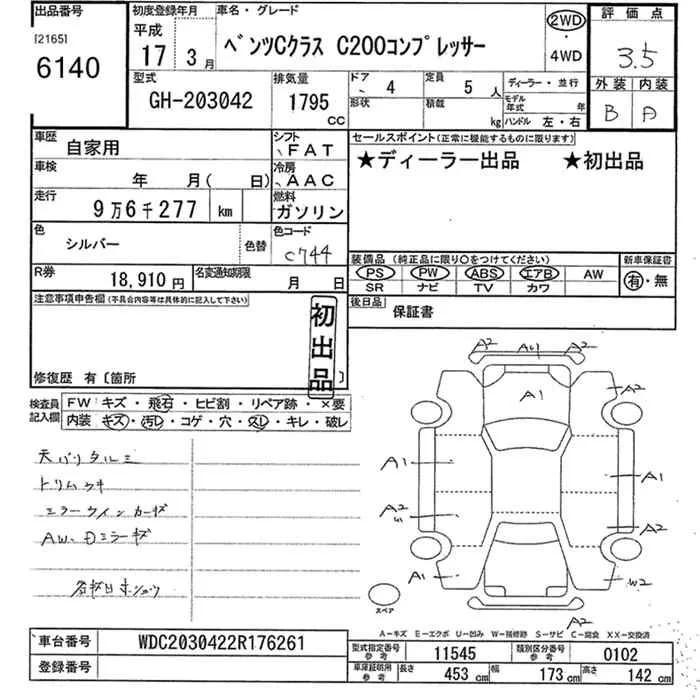 出品番号
[2165]
6140
初度登録年月
平成
17年 3月
車名・グレード
ベンツCクラス C200コンプレッサー
2WD
・
4WD
評価点
3.5
外装 内装
B A
型式
GH-203042
排気量
1795
CC
ドア 4
形状
定員 5人
積載 kg
ディーラー・並行
モデル年式 年
ハンドル 左・右
車歴
自家用
シフト
FAT
車検
年 月( 日)
冷房
AAC
走行
9万6千277 km
燃料
ガソリン
色
シルバー
色替
色コード
C744
R券
18,910円
名変通知期限
月 日
セールスポイント(正常に機能するものに限ります)
★ディーラー出品 ★初出品
装備品(純正品に限り○をつけてください)
PS PW ABS エアB AW
SR ナビ TV カワ
新車保証書
有・無
後日品
保証書
注意事項申告欄(不具合内容等は具体的に記入して下さい)
初出品
修復歴 有〔箇所 〕
検査員記入欄
FW キズ・飛石・ヒビ割・リペア跡・×要
内装 キズ・汚レ・コゲ・穴・スレ・キレ・破レ
天バリタルミ
トリムウキ
ミラーウインカーキズ
AW、Dミラーキズ
A2 A2
A1
A2
A1
A1
A2
A2
A1
W2
A2
スペア
A－キズ E－エクボ U－凹み W－補修跡 S－サビ C－腐食 XX－交換済
車台番号
WDC2030422R176261
登録番号
型式指定番号
参考
11545
類別区分番号
参考
0102
車庫証明用
参考
長さ 453 cm 幅 173 cm 高さ 142 cm